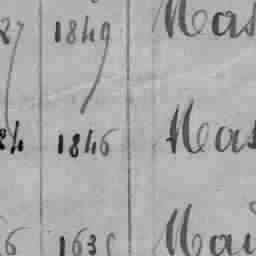 27 1849 Mas
24 1846 Mas
6 163 Mai